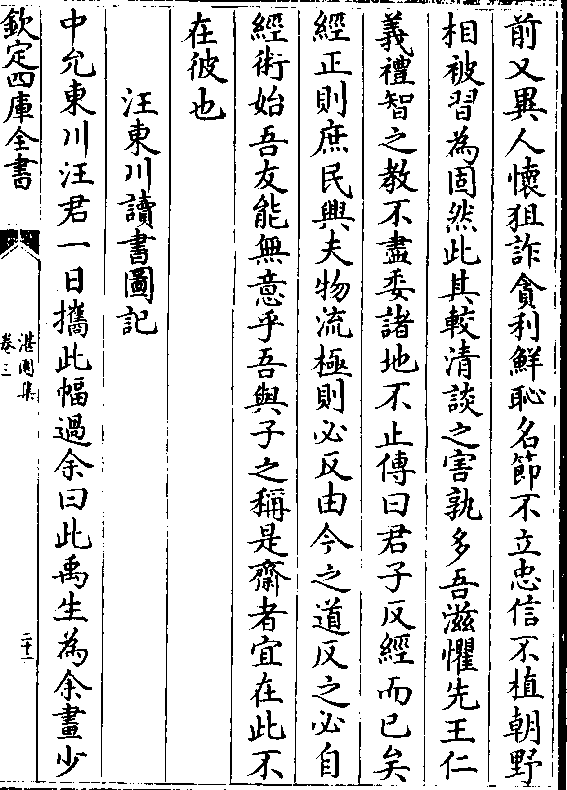 前又異人懷狙詐貪利鮮恥名節不立忠信不植朝野
相被習為固然此其較清談之害孰多吾滋懼先王仁
義禮智之教不盡委諸地不止傳曰君子反經而已矣
經正則庶民興夫物流極則必反由今之道反之必自
經術始吾友能無意乎吾與子之稱是齋者宜在此不
在彼也
汪東川讀書圖記
中允東川汪君一日攜此幅過余曰此禹生為余畫少
欽定四庫全書
湛園集
卷三
二十一